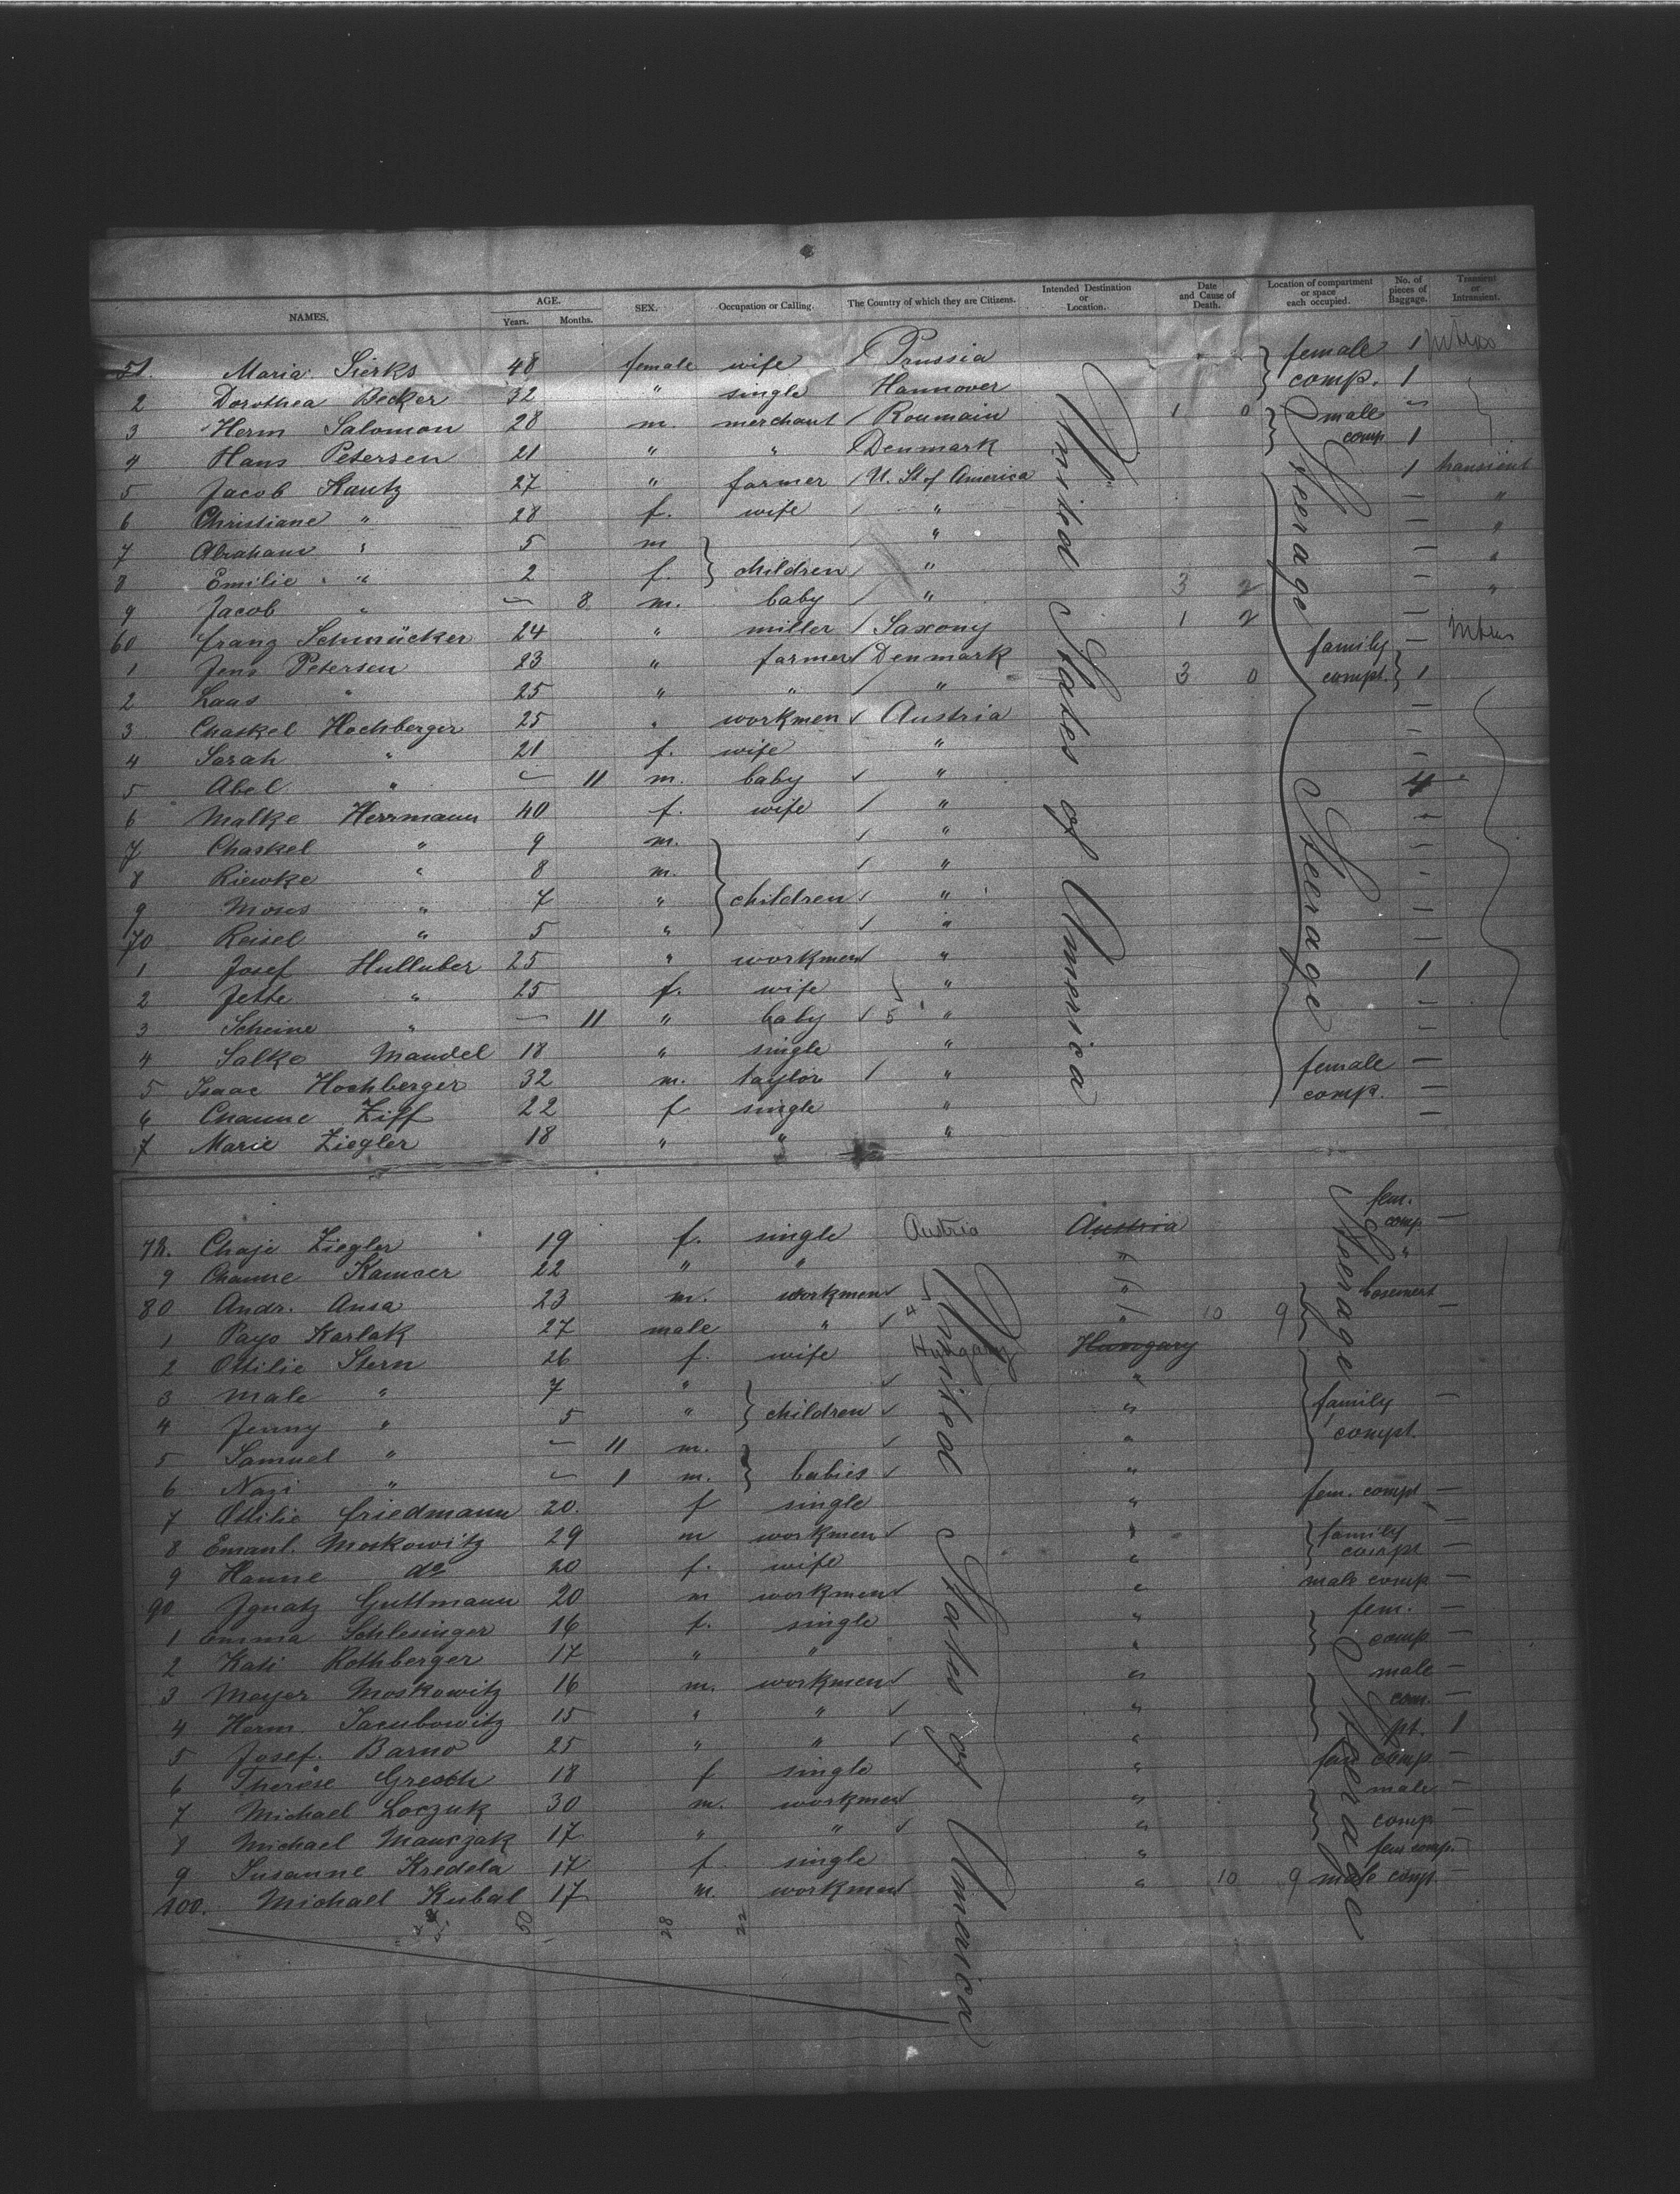 NAMES. AGE. Years. Months. SEX. Occupation or Calling. The Country of which they are Citizens. Intended Destination or Location. Date and Cause of Death. Location of compartment or space each occupied. No. of pieces of Baggage. Transient or Intransient.
51. Maria Sierks 48 female wife / Prussia female 1
2 Dorothea Becker 32 " single Hannover comp. 1
3 Herm Salomon 28 m. merchant / Roumain 1 0 male –
4 Hans Petersen 21 " " / Denmark comp 1
5 Jacob Kautz 27 " farmer / U. St of America 1 transient
6 Christiane " 28 f. wife / " – "
7 Abraham " 5 m / " – "
8 Emilie " 2 f. children / " – "
9 Jacob " – 8 m. baby / " 3 2 – "
60 Franz Schmücker 24 " miller / Saxony 1 2 –
1 Jens Petersen 23 " farmer / Denmark family –
2 Laas " 25 " " / " 3 0 compt. 1
3 Chaskel Hochberger 25 " workmen ✓ Austria –
4 Sarah " 21 f. wife " –
5 Abel " – 11 m. baby ✓ " –
6 Malke Herrmann 40 f. wife / " 4
7 Chaskel " 9 m. ✓ " –
8 Riewke " 8 m. / " –
9 Mows " 7 " children / " –
70 Reisel " 5 " / " –
1 Josef Hulluber 25 " workmen ✓ " –
2 Jette " 25 f. wife " 1
3 Scheine " – 11 " baby ✓ 5 " –
4 Salke Mandel 18 " single " –
5 Isaac Hochberger 32 m. taylor / " female –
6 Channe Ziff 22 f single " comp. –
7 Marie Ziegler 18 " " " –
United States of America
Steerage
Steerage
78. Chaje Ziegler 19 f. single Austria Austria fem. comp –
9 Channe Kamser 22 " " " "
80 Andr. Ansa 23 m. workmen ✓ " basement
1 Payo Karlak 27 male " ✓ " " 10 9 –
2 Ottilie Stern 26 f. wife Hungary Hungary
3 Male " 7 " ✓ "
4 Jenny " 5 " children ✓ " family –
5 Samuel " – 11 m. ✓ " compt.
6 Nazi " – 1 m. babies ✓ "
7 Ottilie Friedmann 20. f single " fem. compt –
8 Emanl. Moskowitz 29 m workmen ✓ " family –
9 Hanne do 20 f. wife " compt –
90 Ignatz Guttmann 20 m workmen ✓ " male comp –
1 Emma Schlesinger 16 f. single " fem. –
2 Kati Rothberger 17 " " " comp –
3 Meyer Moskowitz 16 m. workmen ✓ " male –
4 Herm. Jacubowitz 15 " " ✓ " com. –
5 Josef. Barno 25 " " ✓ " pt. 1
6 Therese Gresch 18 f single " fem comp. –
7 Michael Loczuk 30 m. workmen ✓ " male –
8 Michael Manczak 17 " " ✓ " comp
9 Susanne Kredela 17 f. single " fem comp. –
100. Michael Kubal 17 m. workmen ✓ " 10 9 male comp. –
United States of America
Steerage
Steerage
50 28 22